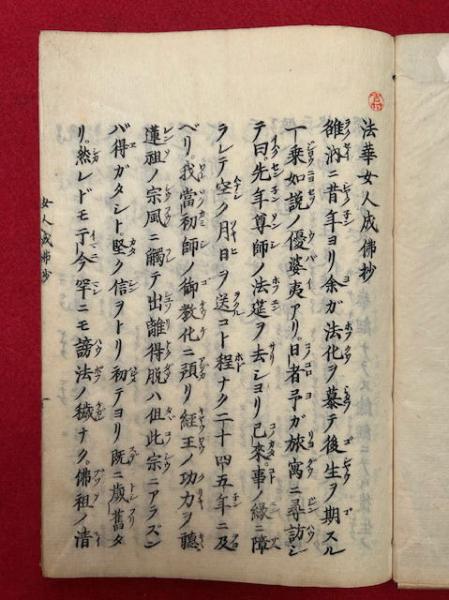 法華女人成佛抄
雒汭ニ昔年ヨリ余ガ法化ヲ慕テ後生ヲ期スル
一乗如説ノ優婆夷アリ日者予ガ旅寓ニ尋訪シ
テ曰先年尊師ノ法莚ヲ去シヨリ已來事ノ縁ニ障
ラレテ空ク月日ヲ送コト程ナク二十四五年ニ及
ベリ我當初師ノ御教化ニ預リ経王ノ功力ヲ聽
蓮祖ノ宗風ニ觸テ出離得脱ハ但此宗ニアラズン
バ得ガタシト堅ク信ヲトリ初テヨリ既ニ歳舊タ
リ然レドモ于今罕ニモ謗法ノ穢ナク佛祖ノ清
女人成佛抄
一